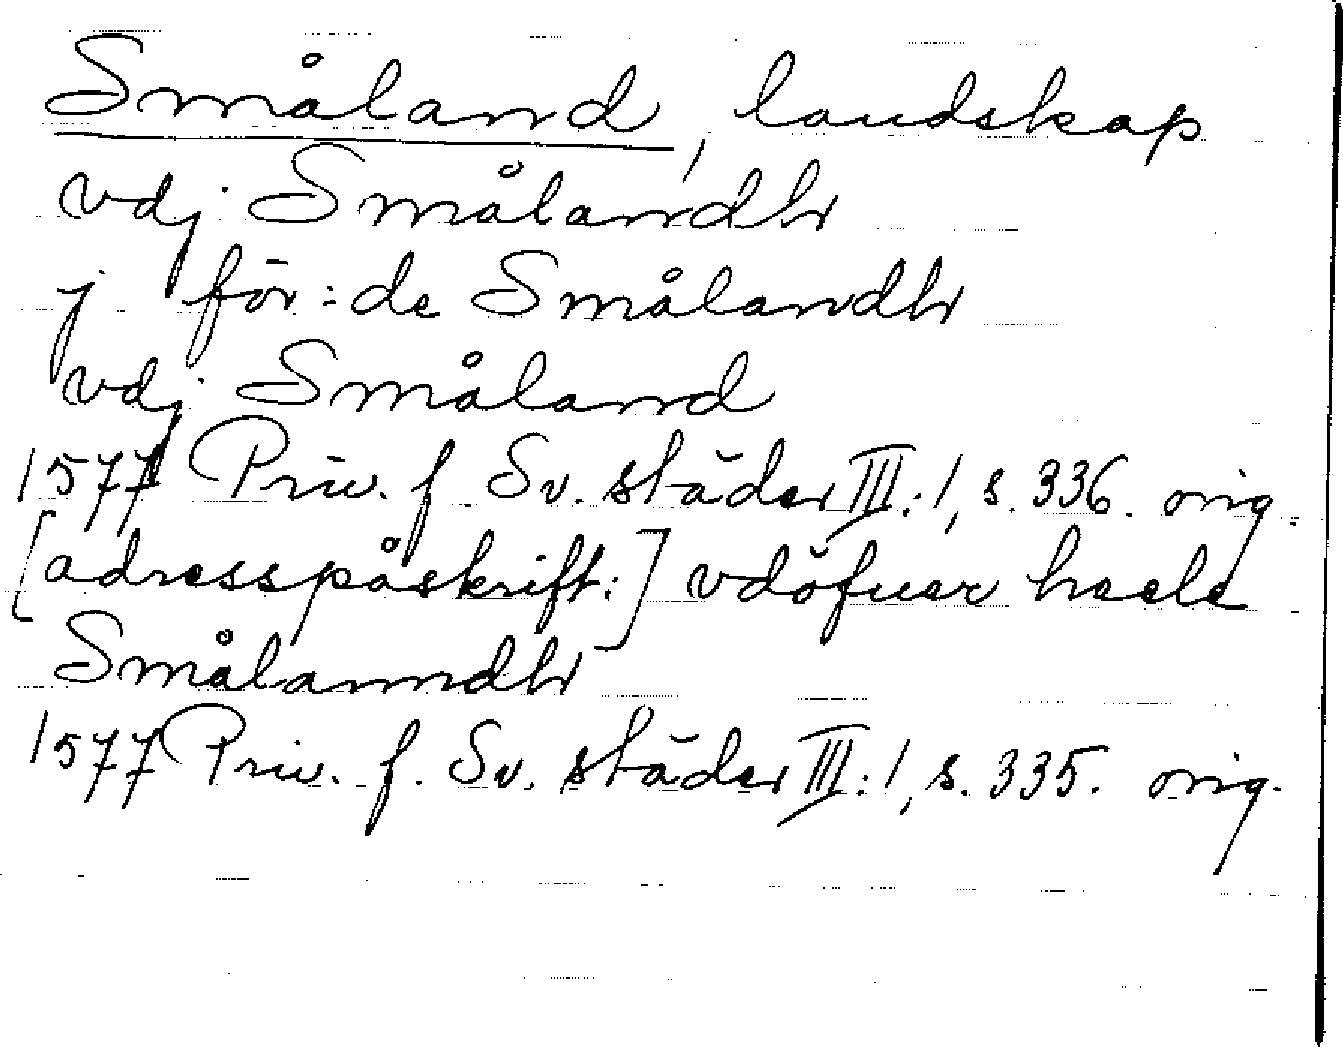 Småland, landskap
vdj Smålandh
j för:de Smålandh
vdj Småland
1577 Priv. f Sv. städer III:1, s. 336. orig.
[adresspåskrift:] vdöfuer heele
Smålanndh
1577 Priv. f. Sv. städer III:1, s. 335. orig.